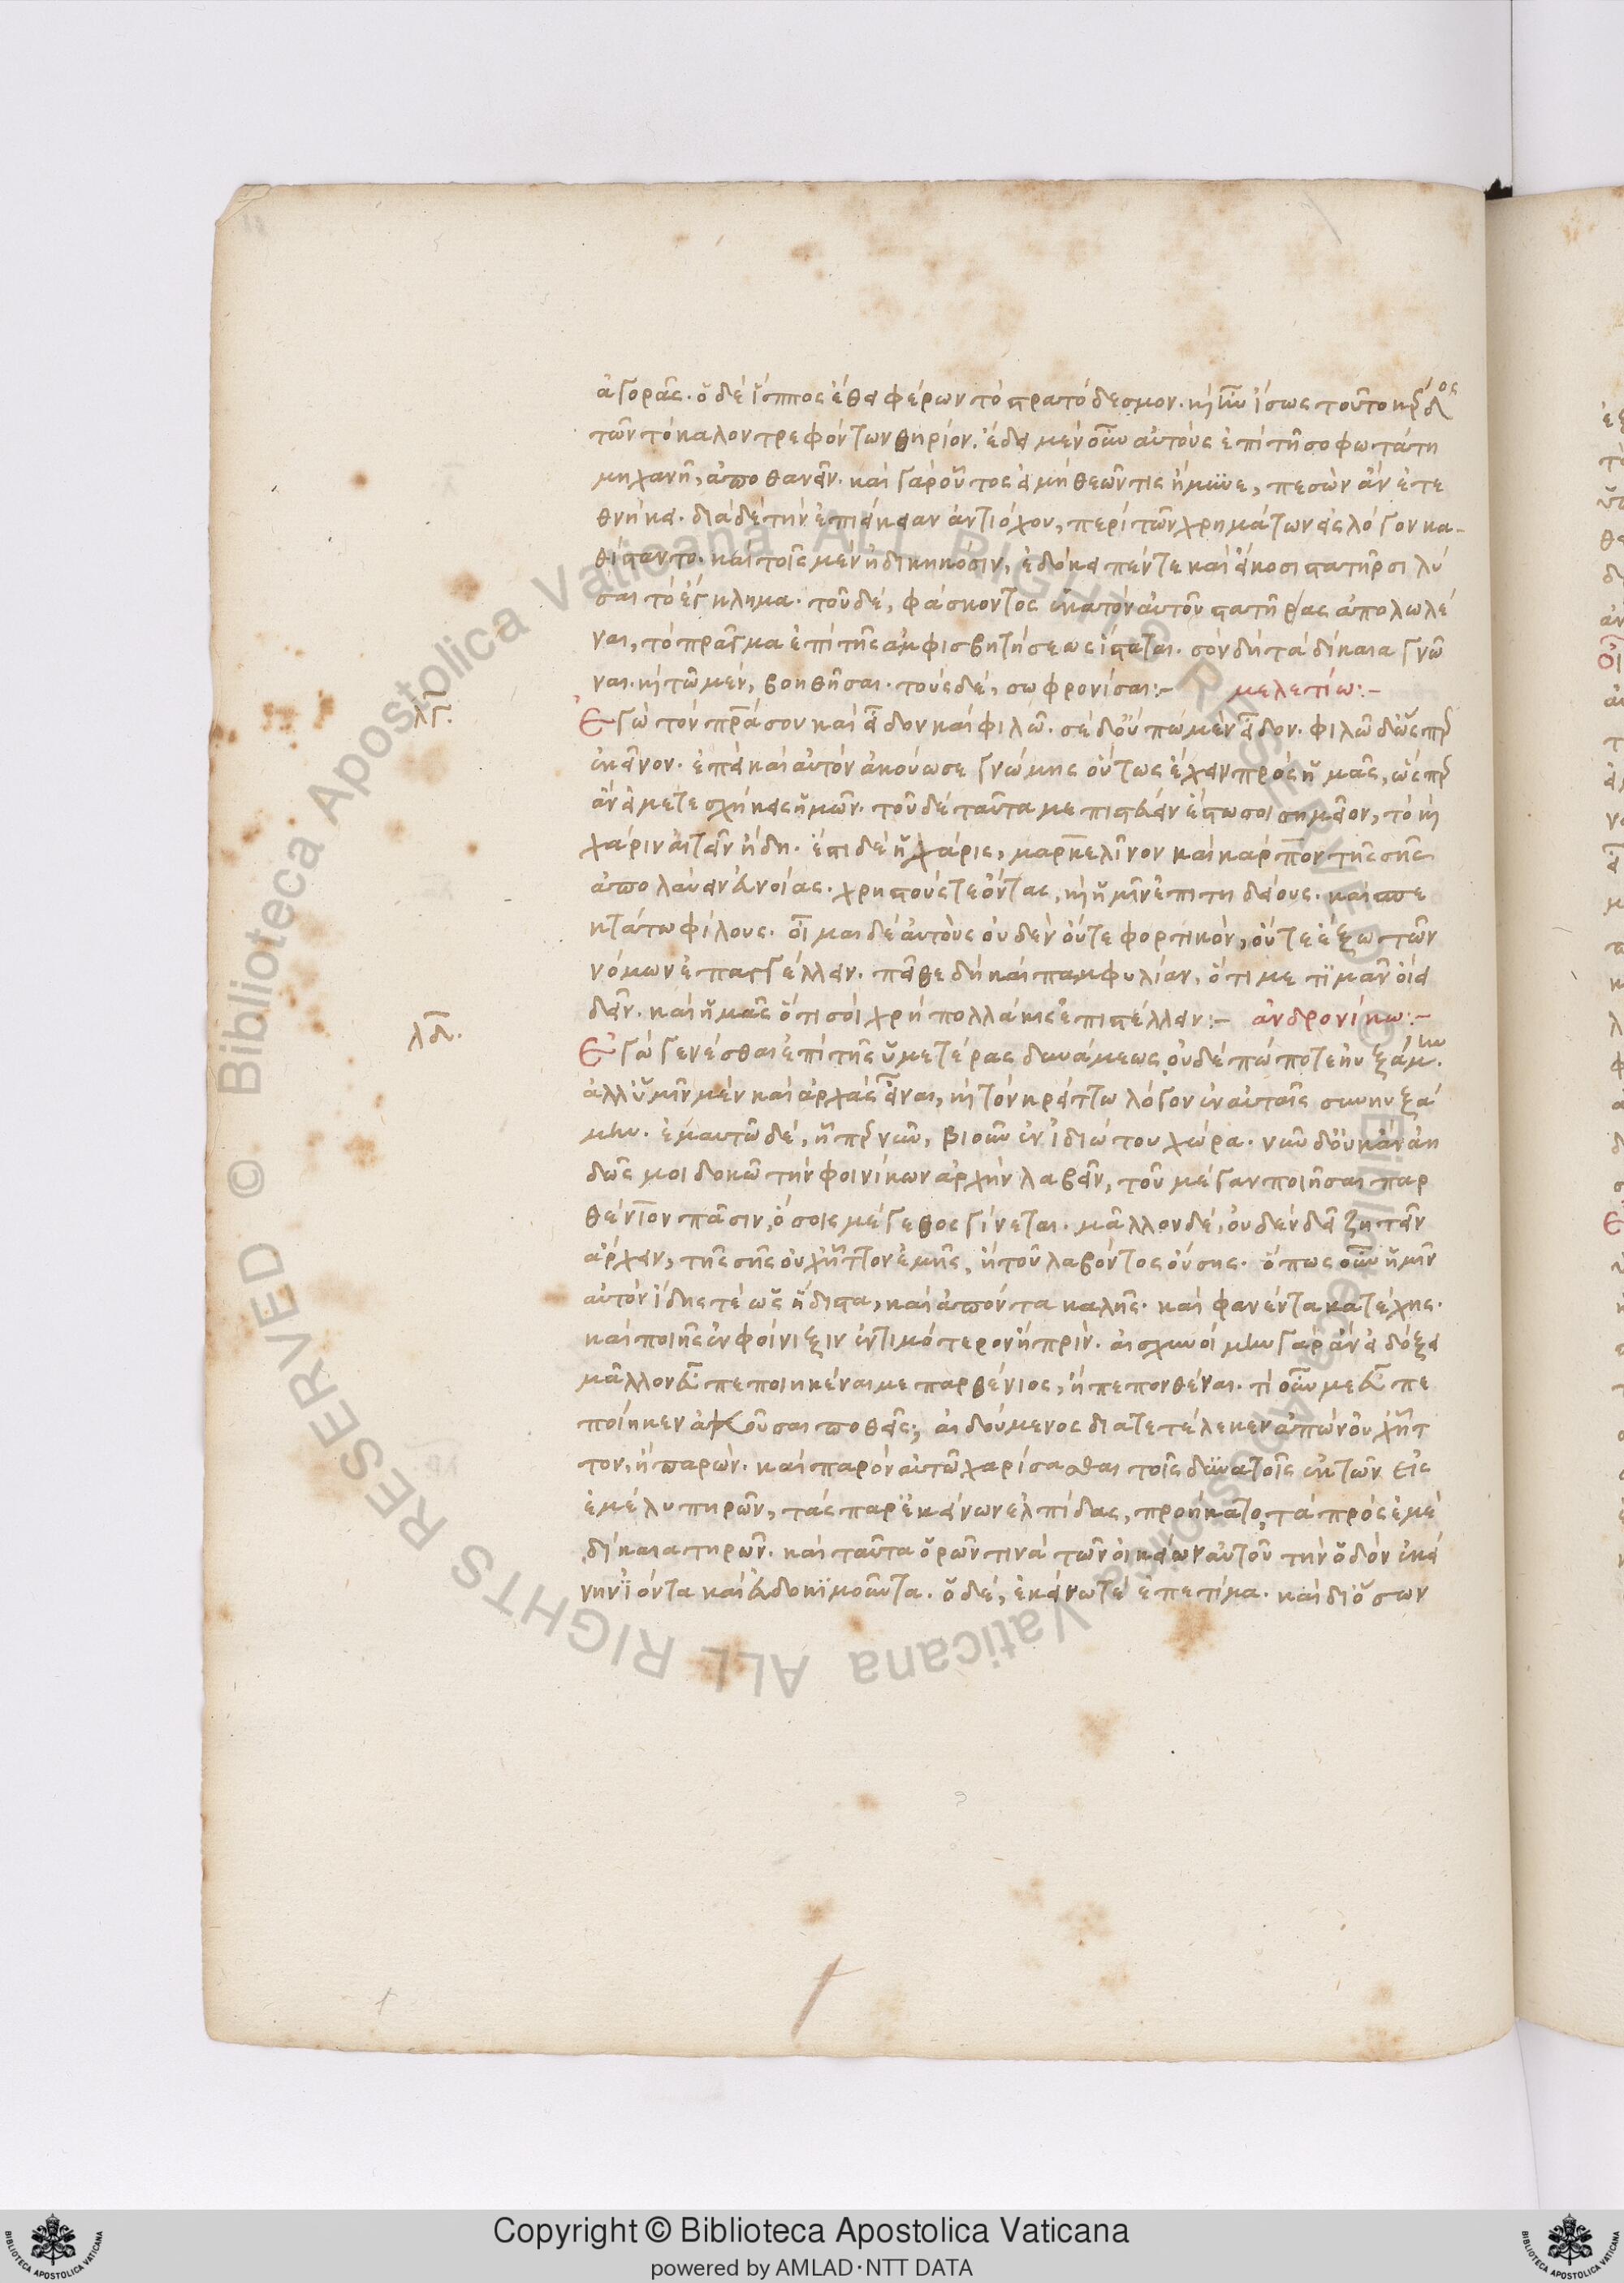 ἀγορᾶς. ὁ δὲ ἵππος ἔθει φέρων τὸ στρατόδεσμον. καὶ ἦν ἴσως τοῦτο κέρδος
τῶν τὸ καλὸν τρεφόντων θηρίον. ἔδει μὲν οὖν αὐτοὺς ἐπὶ τῇ σοφωτάτη
μηχανῆ, ἀποθανεῖν. καὶ γὰρ οὗτος εἰ μὴ θεῶν τις ἤμυνε, πεσὼν ἂν ἐτε
θνήκει. διὰ δὲ τὴν ἐπιείκειαν ἀντιόχου, περὶ τῶν χρημάτων εἰς λόγον κα-
θίσταντο. καὶ τοῖς μὲν ἠδικηκόσιν, ἐδόκει πέντε καὶ εἴκοσι στατῆρσι λύ
σαι τὸ ἔγκλημα. τοῦ δὲ, φάσκοντος ἑκατὸν αὐτοῦ στατῆρας ἀπολωλέ
ναι, τὸ πρᾶγμα ἐπὶ τῆς ἀμφισβητήσεως ἵσταται. σὸν δὴ τὰ δίκαια γνῶ
ναι. καὶ τῶ μὲν, βοηθῆσαι. τοὺς δὲ, σωφρονίσαι:- μελετίω:-
λγ.
Ἐγὼ τὸν πρᾶσον καὶ εἶδον καὶ φιλῶ. σὲ δ' οὔπω μὲν εἶδον. φιλῶ δ' ὥσπερ
ἐκεῖνον. ἐπεὶ καὶ αὐτὸν ἀκούω σε γνώμης οὕτως ἔχειν πρὸς ἡμᾶς, ὥσπερ
ἂν εἰ μετεσχήκεις ἡμῶν. τοῦ δὲ ταῦτά με πιστεύειν ἔστω σοι σημεῖον, τὸ καὶ
χάριν αἰτεῖν ἤδη. ἔστι δὲ ἡ χάρις, μαρκελῖνον καὶ κάρπον τῆς σῆς
ἀπολαύειν εὐνοίας. χρηστούς τε ὄντας, καὶ ἡμῖν ἐπιτηδείους. καὶ σπε
κτάτω φίλους. οἶμαι δὲ αὐτοὺς οὐδὲν οὔτε φορτικὸν, οὔτε ἔξω τῶν
νόμων ἐπαγγέλλειν. πεῖθε δὴ καὶ παμφυλίαν, ὅτι με τιμᾶν οἴει
δεῖν. καὶ ἡμᾶς ὅτι σοὶ χρὴ πολλάκις ἐπιστέλλειν:- ἀνδρονίκω:-
λδ.
Ἐγὼ γενέσθαι ἐπὶ τῆς ὑμετέρας δυνάμεως οὐδὲ πώποτε ηὐξάμην.
ἀλλ' ὑμῖν μὲν καὶ ἀρχὰς εἶναι, καὶ τὸν κρείττω λόγον ἐν αὐταῖς συνηυξά
μην. ἐμαυτῶ δὲ, ἥπερ νῦν, βιοῦν ἐν ἰδιώτου χώρα. νῦν δ' οὐκ ἂν ἀη
δῶς μοι δοκῶ τὴν φοινίκων ἀρχὴν λαβεῖν, τοῦ μέγαν ποιῆσαι παρ
θένιον πᾶσιν, ὅσοις μέγεθος γίνεται. μᾶλλον δὲ, οὐδὲν δεῖ ζητεῖν
ἄρχειν, τῆς σῆς οὐχ ἧττον ἐμῆς, ἢ τοῦ λαβόντος οὔσης. ὅπως οὖν ἡμῖν
αὐτὸν ἴδης τέ ὡς ἥδιστα, καὶ ἀπόντα καλῆς. καὶ φανέντα κατέχης.
καὶ ποιῆς ἐν φοίνιξιν ἐντιμότερον ἢ πρίν. αἰσχυνοίμην γὰρ ἂν εἰ δόξει
μᾶλλον εὖ πεποιηκέναι με παρθένιος, ἢ πεπονθέναι. τί οὖν με εὖ πε
ποίηκεν ἀκοῦσαι ποθεῖς; αἰδούμενος διατετέλεκεν ἀπὼν οὐχ ἧτ
τον, ἢ παρών. καὶ παρὸν αὐτῶ χαρίσασθαι τοῖς δυνατοῖς ἐκ τῶν εἰς
ἐμὲ λυπηρῶν, τὰς παρ' ἐκείνων ἐλπίδας, προήκατο, τὰ πρὸς ἐμὲ
δίκαια τηρῶν. καὶ ταῦτα ὁρῶν τινὰ τῶν οἰκείων αὐτοῦ τὴν ὁδὸν ἐκεί
νην ἰόντα καὶ εὐδοκιμοῦντα. ὁ δὲ, ἐκείνω τέ ἐπετίμα. καὶ δι' ὅσων
Copyright © Biblioteca Apostolica Vaticana
powered by AMLAD·NTT DATA